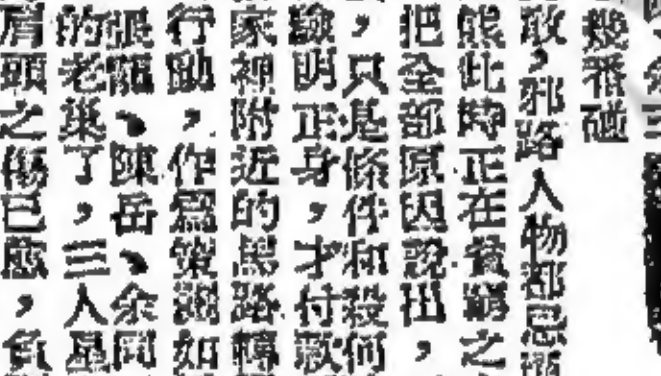 幾番碰
敢，邪路人物都忌
熊此時正在貧窮之
把全部原因說出，
，只是條件和殺何
驗明正身，才付款
家裡附近的馬路
行動，作為策劃如
張龍、陳岳、余同
的老巢了，三人
肩頭之傷已